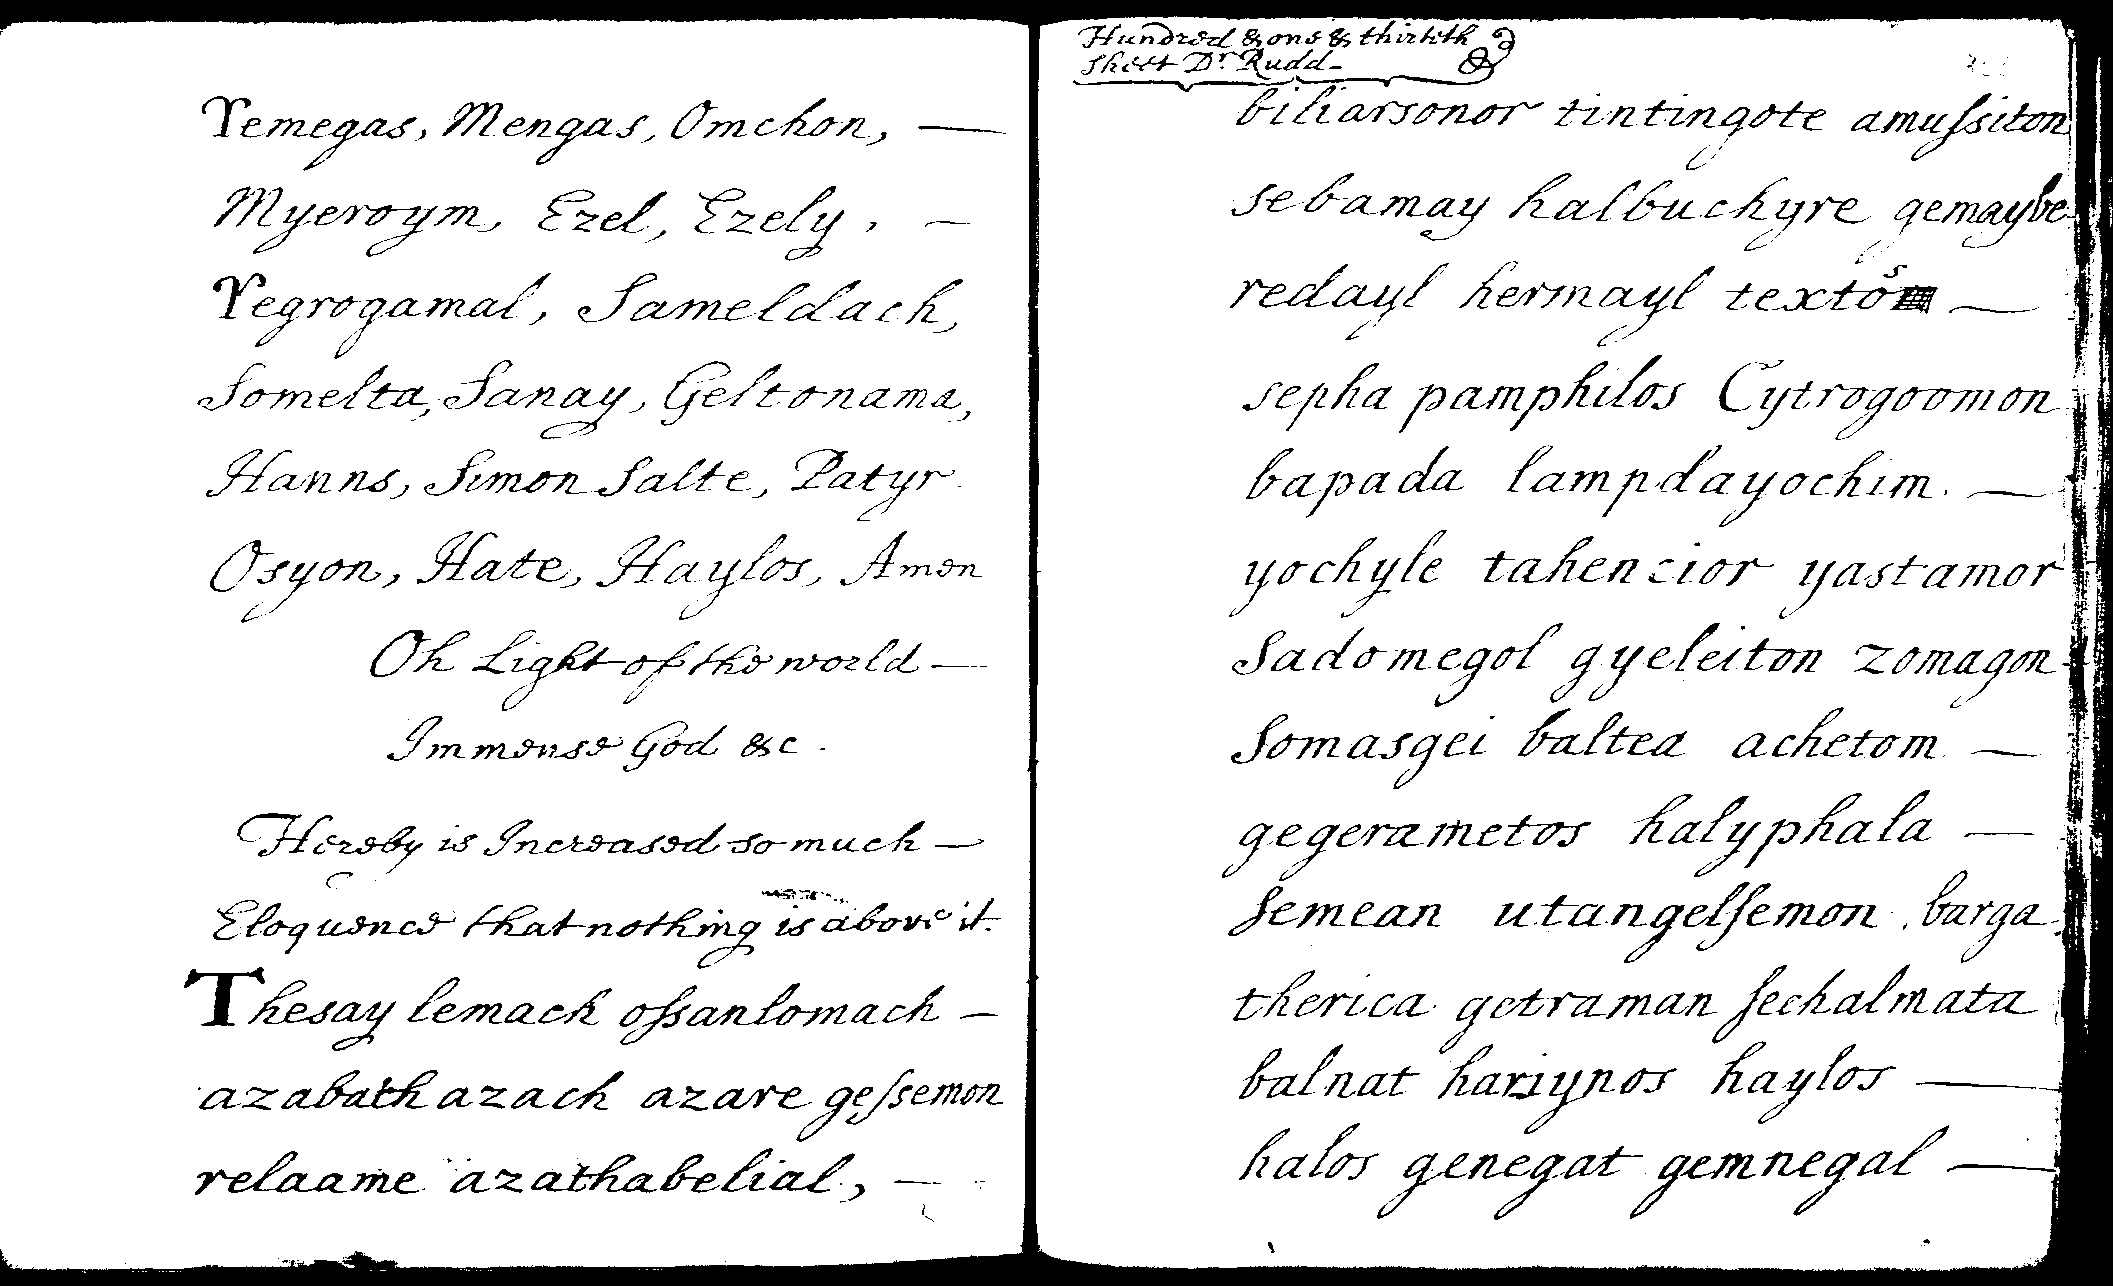 Yemegas, Mengas, Omchon, —
Myeroym, Ezel, Ezely, —
Yegrogamal, Sameldach,
Somelta, Sanay, Geltonama,
Hanns, Simon Salte, Patyr
Osyon, Hate, Haylos, Amen
Oh Light of the world —
Immense God &c.
Hereby is Increased so much —
Eloquence that nothing is above it.
Thesay lemach oſsanlomach —
azabath azach azare geſsemon
relaame azathabelial, —
Hundred & one & thirtith
sheet Dr. Rudd-
biliarsonor tintingote amuſsiton
sebamay halbuchyre gemaybe
redayl hermayl textos —
sepha pamphilos Cytrogoomon
bapada lampdayochim. —
yochyle tahencior yastamor
Sadomegol gyeleiton zomagon
Somasgei baltea achetom —
gegerametos halyphala —
semean utangelſemon. barga
therica getraman ſechalmata
balnat hariynos haylos —
halos genegat gemnegal —